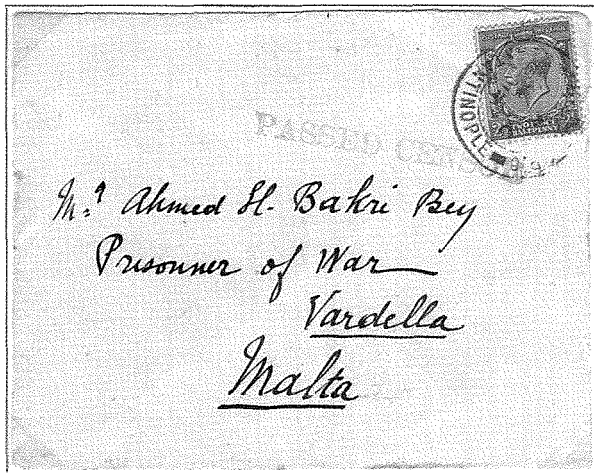 PASSED CENSOR
TINOPLE
Mr Ahmed H. Bakri Bey
Prisonner of War
Vardella
Malta